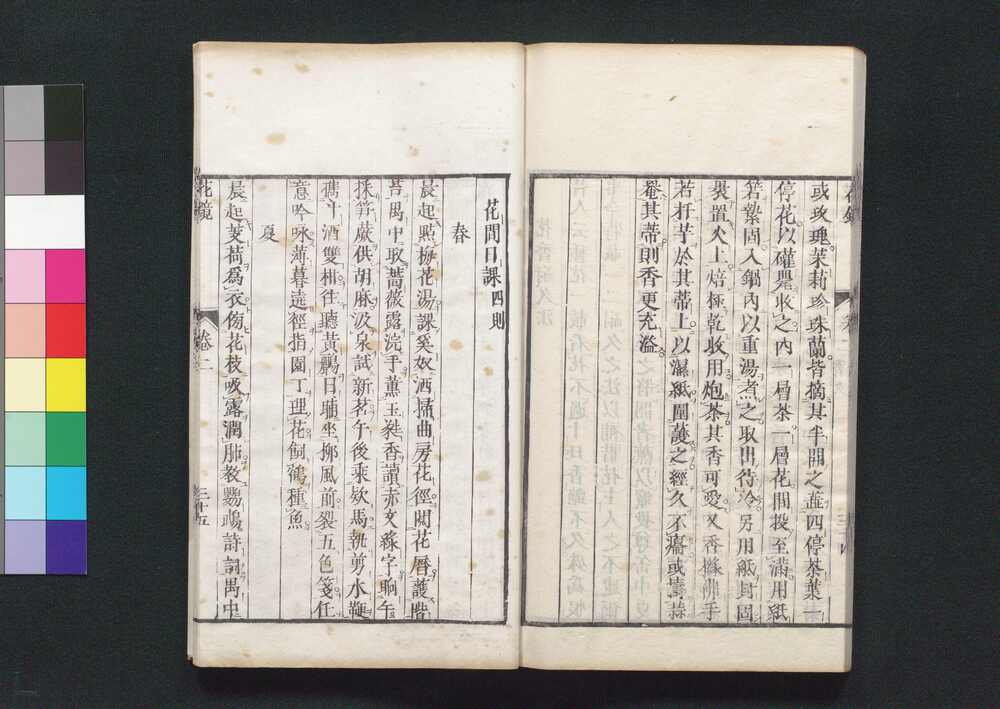 或玫瑰茉莉珍珠蘭皆摘其半開之蕋四停茶葉一
停花以礶甖收之内一層茶一層花間投至滿用紙
箬縶固入鍋内以重湯煮之取出待冷另用紙封固
褁置火上焙極乾收用炮茶其香可愛又香櫞佛手
若扞芋於其蒂上以濕紙圍護之經久不癟或擣蒜
罨其蒂則香更充溢
花間日課四則
春
晨起點梅花湯課奚奴洒掃曲房花徑閱花曆護堦
苔禺中取薔薇露浣手薰玉蕤香讀赤文綠字晌午
採筍蕨供胡麻汲泉試新茗午後乘欵馬執剪水鞭
携斗酒雙柑往聽黃鸝日晡坐柳風前裂五色箋任
意吟咏薄暮遶徑指園丁理花飼鶴種魚
夏
晨起芰荷爲衣傍花枝吸露潤肺敎鸚鵡詩詞禺中
花鏡
卷二
三十五